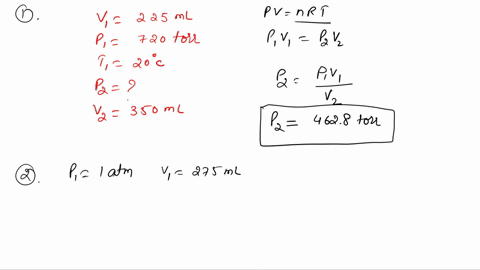 1.
V₁ = 225 mL
P₁ = 720 torr
T₁ = 20°C
P₂ = ?
V₂ = 350 mL
PV = nRT
P₁V₁ = P₂V₂
P₂ = P₁V₁ / V₂
P₂ = 462.8 torr
2. P₁ = 1 atm V₁ = 275 mL